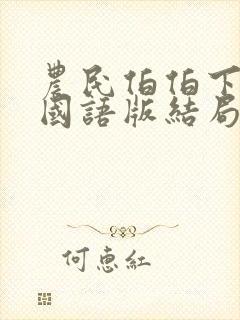 農民伯伯下
國語版結局
何惠紅